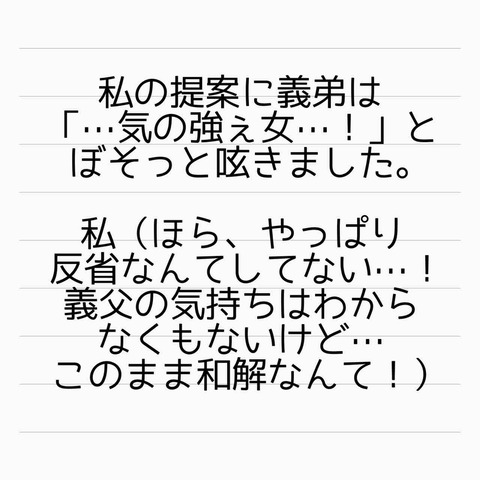 私の提案に義弟は
「…気の強ぇ女…！」と
ぼそっと呟きました。
私（ほら、やっぱり
反省なんてしてない…！
義父の気持ちはわから
なくもないけど…
このまま和解なんて！）